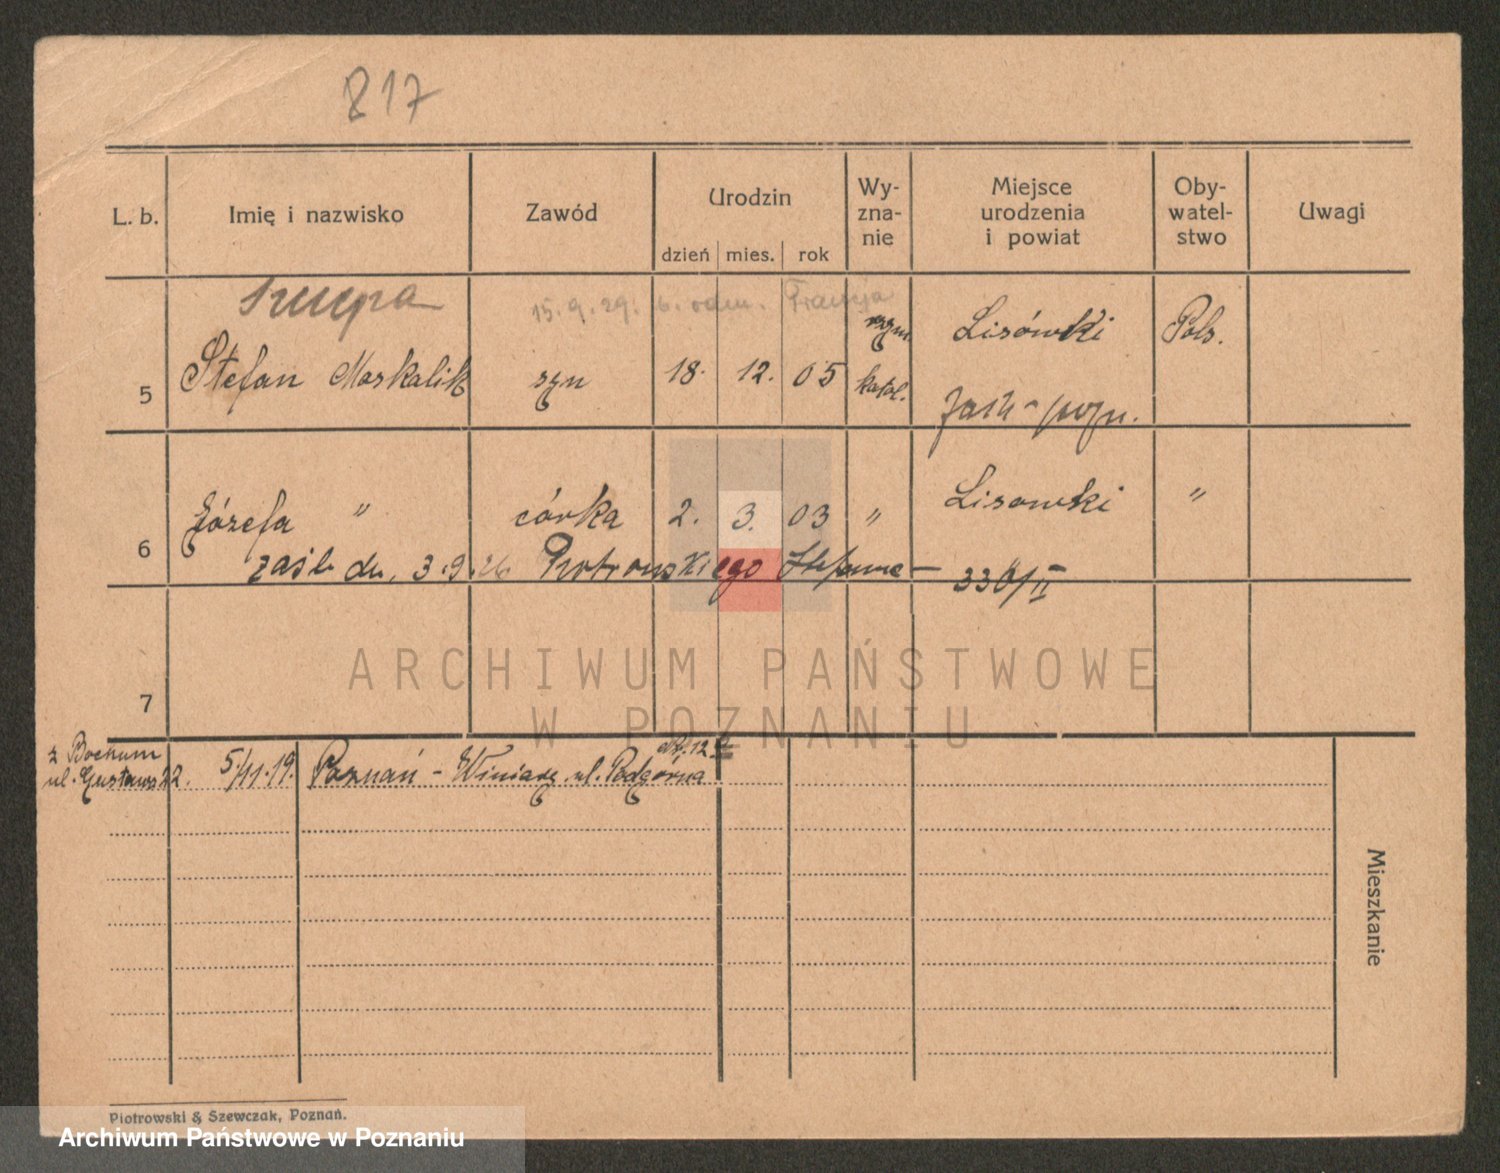 817
L. b.
Imię i nazwisko
Zawód
Urodzin
dzień
mies.
rok
Wy-
zna-
nie
Miejsce
urodzenia
i powiat
Oby-
watel-
stwo
Uwagi
15. 9. 29. Francja
5
Stefan Moskalik
syn
18. 12. 05
rzym.
katol.
Lisówki
Pols.
6
Józefa "
córka
2. 3. 03
"
Lisowki
"
zaśl. dn. 3.9.26 Piotrowskiego Stefana –
330/II
7
ARCHIWUM PAŃSTWOWE
W POZNANIU
z Bochum
ul. Gustawa 22.
5/11.19.
Poznań - Winiary ul. Podgórna
nr. 12
Mieszkanie
Piotrowski & Szewczak, Poznań.
Archiwum Państwowe w Poznaniu